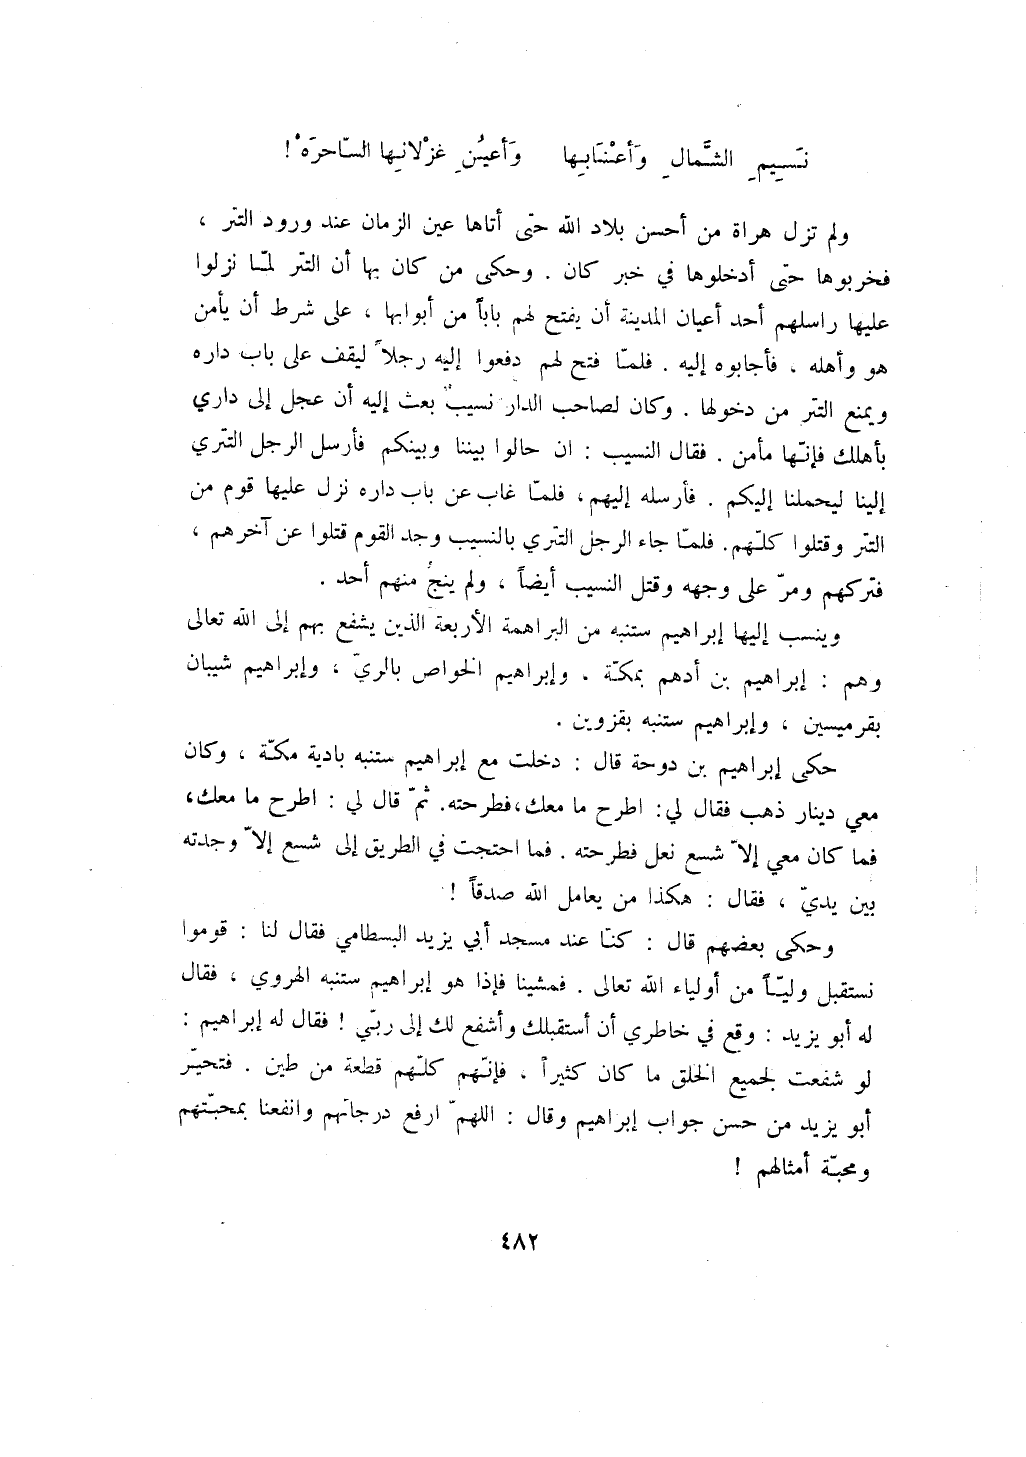 نَسِيمِ الشَّمالِ وَأَعْنَابِها وَأَعيُنِ غزْلانِها السّاحرَهْ !
ولم تزل هراة من أحسن بلاد الله حتّى أتاها عين الزمان عند ورود التتر ،
فخربوها حتّى أدخلوها في خبر كان . وحكى من كان بها أن التتر لمّا نزلوا
عليها راسلهم أحد أعيان المدينة أن يفتح لهم باباً من أبوابها ، على شرط أن يأمن
هو وأهله ، فأجابوه إليه . فلمّا فتح لهم دفعوا إليه رجلاً ليقف على باب داره
ويمنع التتر من دخولها . وكان لصاحب الدار نسيبٌ بعث إليه أن عجل إلى داري
بأهلك فإنّها مأمن . فقال النسيب : ان حالوا بيننا وبينكم فأرسل الرجل التتري
إلينا ليحملنا إليكم . فأرسله إليهم، فلمّا غاب عن باب داره نزل عليها قوم من
التتر وقتلوا كلّهم. فلمّا جاء الرجل التتري بالنسيب وجد القوم قتلوا عن آخرهم ،
فتركهم ومرّ على وجهه وقتل النسيب أيضاً ، ولم ينجُ منهم أحد .
وينسب إليها إبراهيم ستنبه من البراهمة الأربعة الذين يشفع بهم إلى الله تعالى
وهم : إبراهيم بن أدهم بمكّة ، وإبراهيم الخواص بالريّ ، وإبراهيم شيبان
بقرميسين ، وإبراهيم ستنبه بقزوين .
حكى إبراهيم بن دوحة قال : دخلت مع إبراهيم ستنبه بادية مكّة ، وكان
معي دينار ذهب فقال لي: اطرح ما معك،فطرحته. ثمّ قال لي : اطرح ما معك،
فما كان معي إلاّ شسع نعل فطرحته . فما احتجت في الطريق إلى شسع إلاّ وجدته
بين يديّ ، فقال : هكذا من يعامل الله صدقاً !
وحكى بعضهم قال : كنّا عند مسجد أبي يزيد البسطامي فقال لنا : قوموا
نستقبل وليّاً من أولياء الله تعالى . فمشينا فإذا هو إبراهيم ستنبه الهروي ، فقال
له أبو يزيد : وقع في خاطري أن أستقبلك وأشفع لك إلى ربّي ! فقال له إبراهيم :
لو شفعت لجميع الخلق ما كان كثيراً ، فإنّهم كلّهم قطعة من طين . فتحيّر
أبو يزيد من حسن جواب إبراهيم وقال : اللهمّ ارفع درجاتهم وانفعنا بمحبّتهم
ومحبّة أمثالهم !
٤٨٢